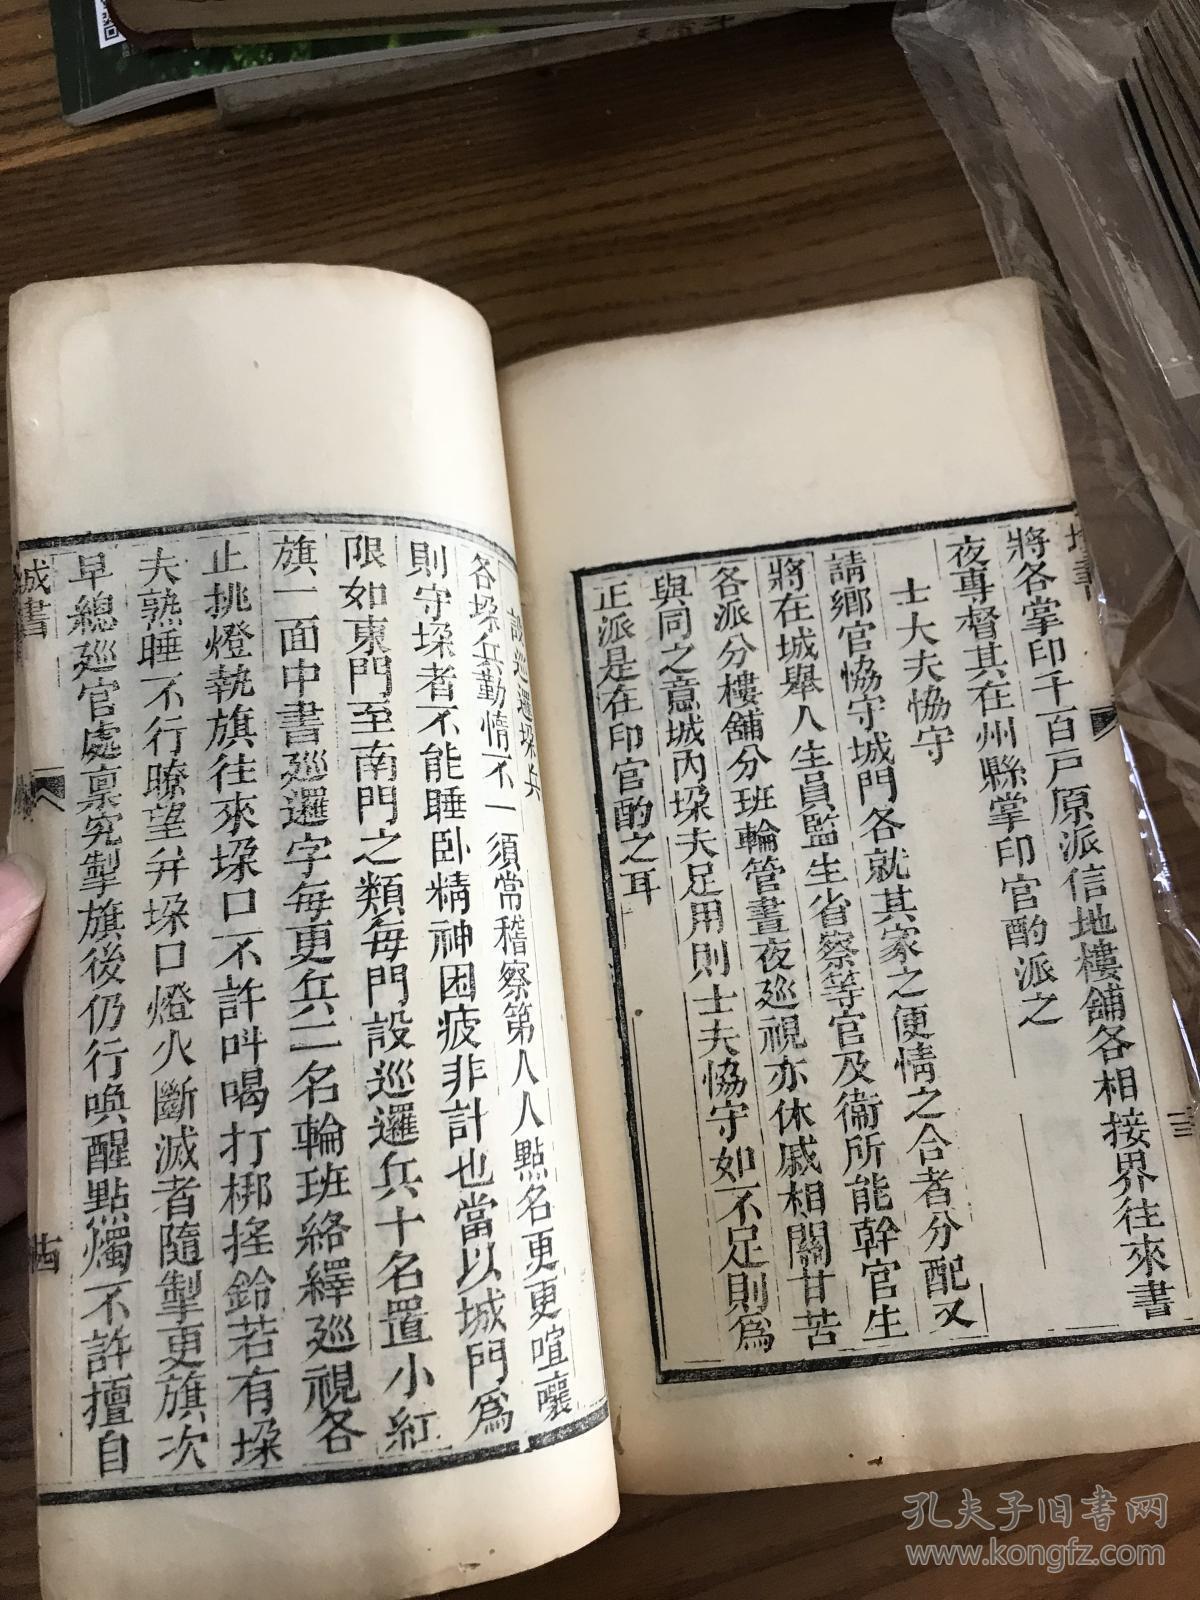 將各掌印千百戸原派信地樓舖各相接界往來書
夜專督其在州縣掌印官酌派之
士大夫恊守
請鄉官恊守城門各就其家之便情之合者分配又
將在城舉人生員監生省察等官及衞所能幹官生
各派分樓舖分班輪管晝夜廵視亦休戚相關甘苦
與同之意城內垜夫足用則士夫恊守如不足則爲
正派是在印官酌之耳
設廵邏垜兵
各垜兵勤惰不一須常稽察第人人點名更更喧嚷
則守垜者不能睡卧精神困疲非計也當以城門爲
限如東門至南門之類每門設廵邏兵十名置小紅
旗一面中書廵邏字每更兵二名輪班絡繹廵視各
止挑燈執旗往來垜口不許呌喝打梆搖鈴若有垜
夫熟睡不行瞭望幷垜口燈火斷滅者隨掣更旗次
早總廵官處禀究掣旗後仍行喚醒點燭不許擅自
城書
十四
孔夫子旧书网
www.kongfz.com